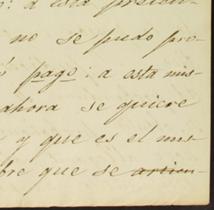 : a esta preten-
no se pudo pro-
pago: a esta mis-
ahora se quiere
y que es el mis-
bre que se